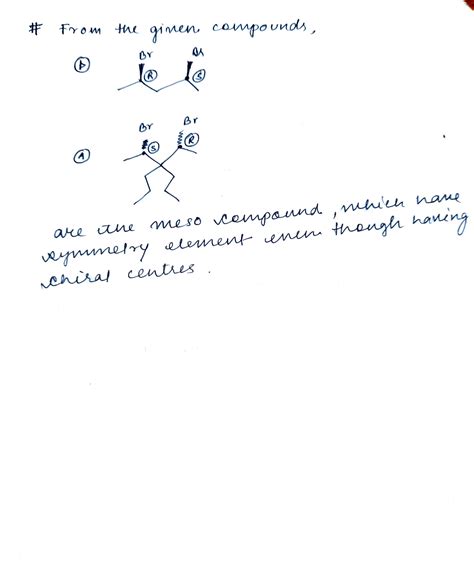 # From the given compounds,
Br Br
Ⓓ Ⓡ Ⓢ
Br Br
Ⓐ Ⓢ Ⓡ
are the meso compound, which have
symmetry element even though having
chiral centres.